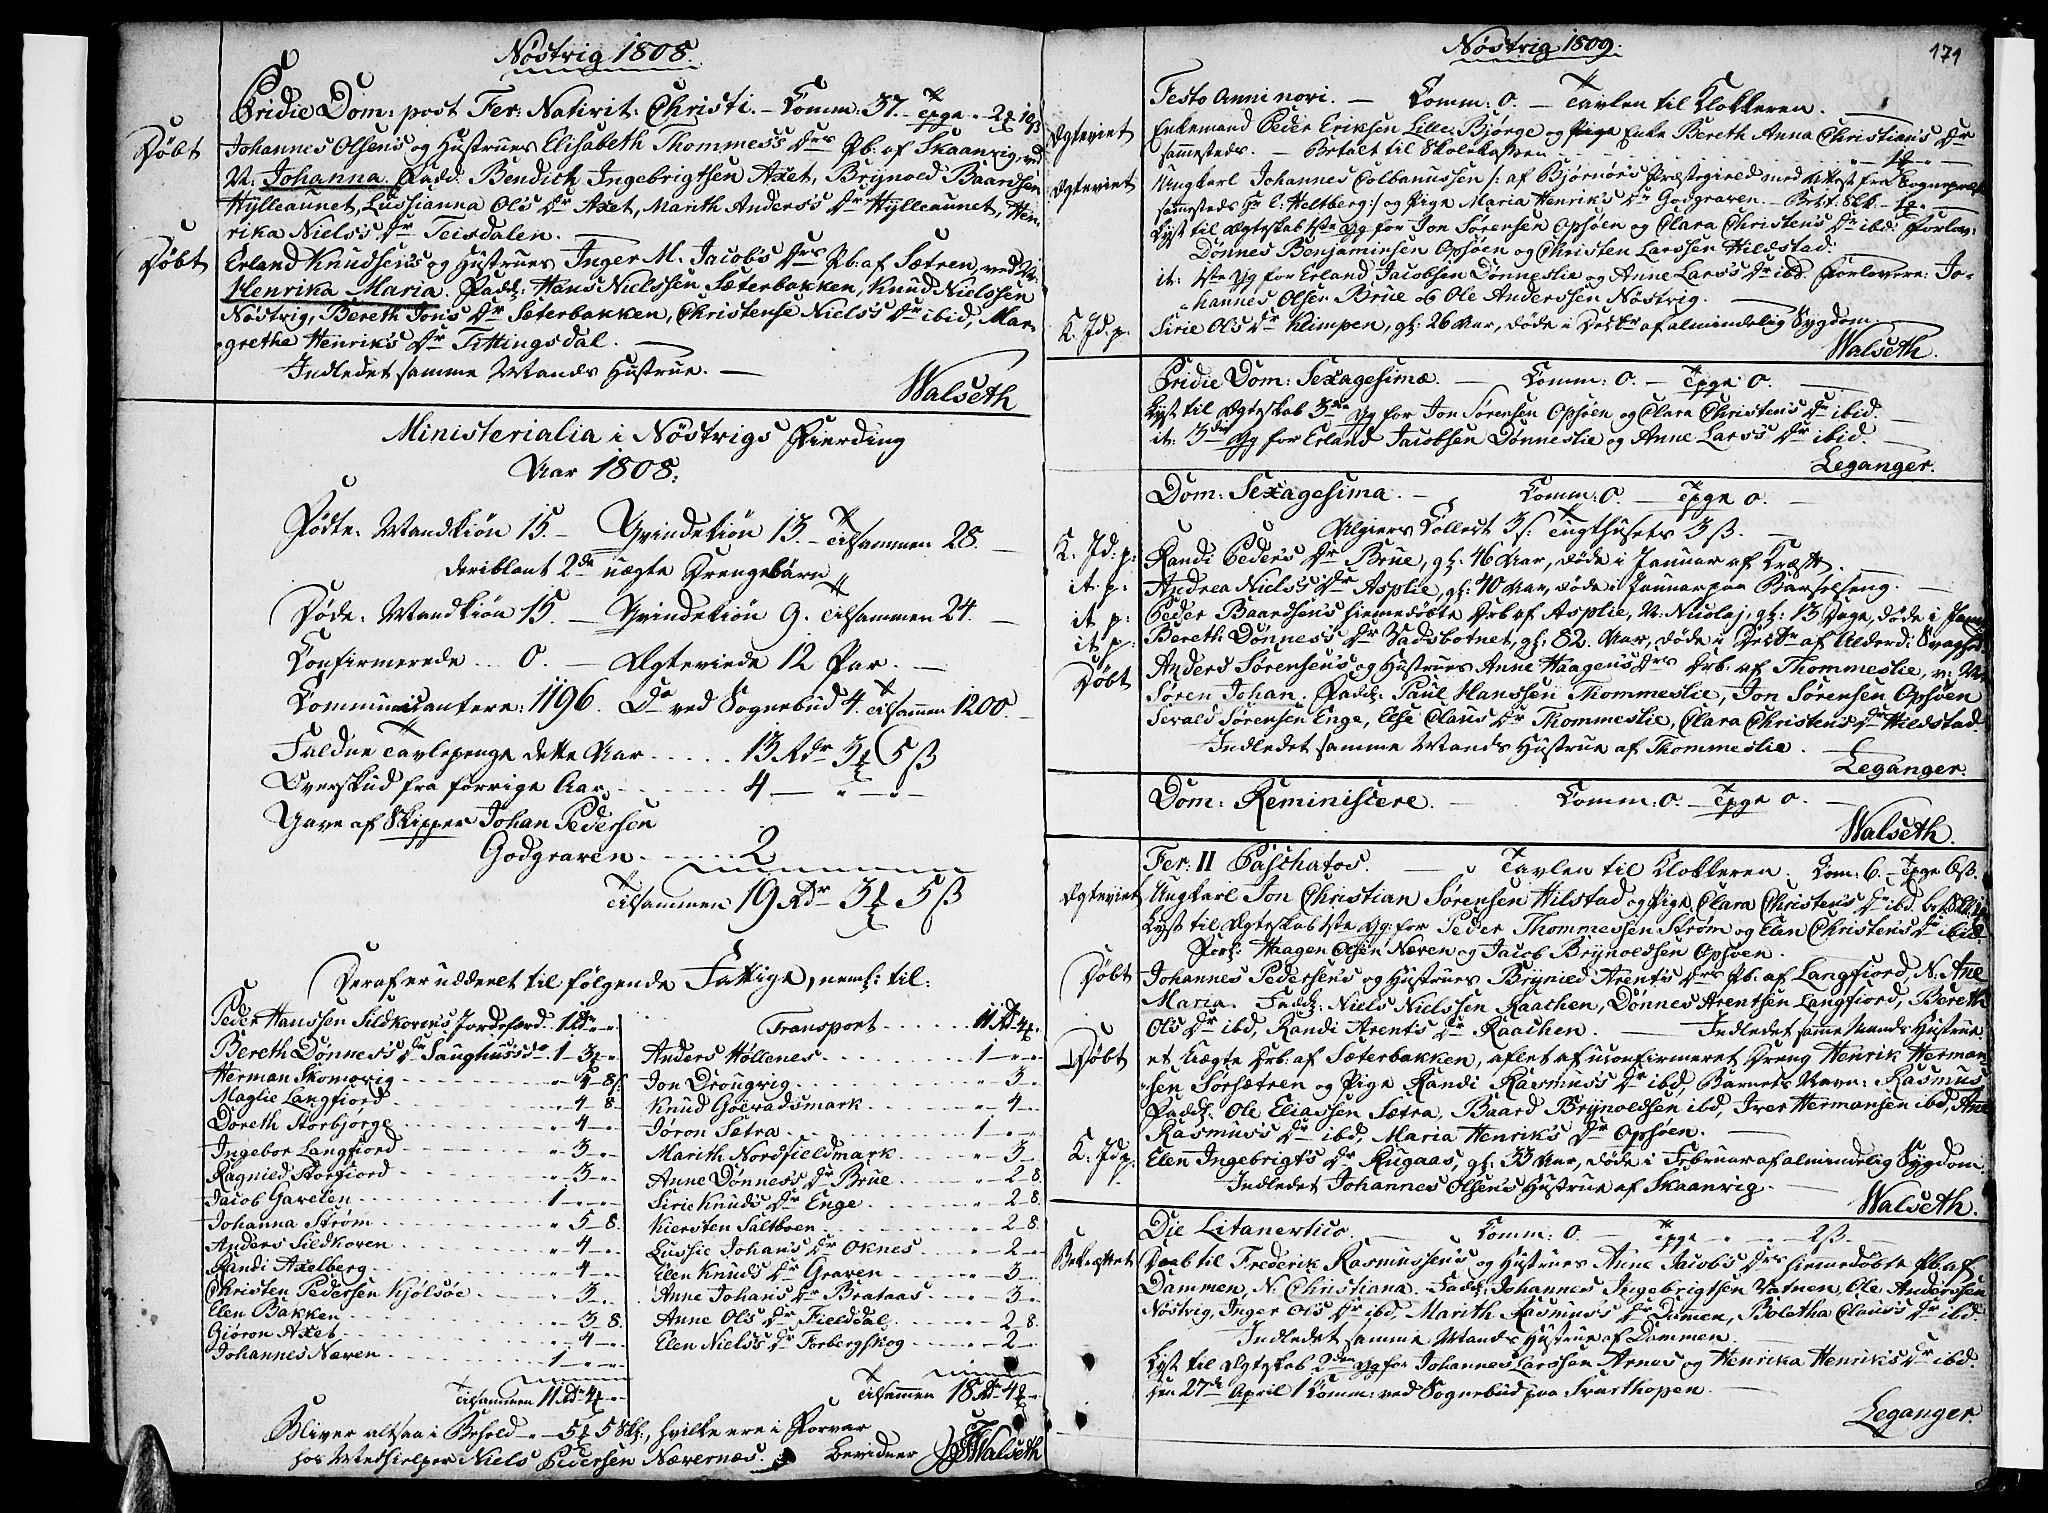 Nöstvig 1808.
Pridie Dom: post Fer: Nativit: Christi. – Comm: 37. – Tpge. 2
Døbt Johannes Olsens og Hustrues Elisabeth Thommess Drs Pb. af Skaanvig, ved
N. Johanna. Fadd. Bendick Ingebrigtsen Axet, Brynold Baardsen
Hylleaunet, Lussianna Ols Dr Axet, Marith Anders's Dr Hylleaunet, Hen-
rika Niels's Dr Teisdalen.
Døbt Erland Knudsens og Hustrues Inger M. Jacobs Drs Pb. af Sætren, ved N.
Henrika Maria. Fadd: Hans Nielssen Sæterbakken, Knud Nielssen
Nöstvig, Bereth Jons Dr Seterbakken, Christense Niels's Dr ibid, Mar-
grethe Henrik's Dr Fittingsdal.
Indledet samme Mands Hustrue.
Walseth
Ministerialia i Nöstvigs Fierding
Aar 1808:
Fødte: Mandkiön 15. – Qvindekiön 13. – Tilsammen 28.
deriblant 2de uægte Drengebörn
Døde: Mandkiön 15. – Qvindekiön 9. Tilsammen 24.
Confirmerede .. 0. – Ægteviede 12 Par.
Communicantere: 1196. Do ved Sognebud 4. Tilsammen 1200.
Faldne Tavlepenge dette Aar ..... 13 Rdr 3 5 ß
Overskud fra forrige Aar ..... 4 — " — " —
Gave af Skipper Johan Pedersen
Godgraven ..... 2
Tilsammen 19 Rdr 3 5 ß
Deraf er uddeelt til følgende Fattige, neml: til:
Peder Hanssen Sildkovens Jordefærd .. 1 Rdr " "
Bereth Dønness Dr Sanghuss do 1 – 3 "
Herman Skomovig " 4 – 8 ß
Maglie Langfiord " 4 – 8
Doreth Storbjørge " 4 – "
Ingebor Langfiord " 3 – "
Ragnied Storfiord " 3 – "
Jacob Gavelen 1 – " – "
Johanna Strøm " 5 – 8
Anders Sildkoven " 4 – "
Randi Axelberg " 4 – "
Christen Pedersen Kjølsøe " 3 – "
Elen Bakken " 3 8
Gjøron Axet " 4 – "
Johannes Næven 1 – " – "
Tilsammen 11 Rdr 4 "
Transport ..... 11 Rdr 4
Anders Høllenes 1 – " – "
Jon Drougvig " 3 – "
Knud Goevadsmark " 4 – "
Jøron Sætra 1 – " – "
Marith Nordfieldmark " 3 –
Anne Dønness Dr Brue " 2 8
Sirie Knuds Dr Enge " 2 8
Kiersten Saltboen " 2 – 8
Lussie Johans Dr Oknes " 2 – "
Elen Knuds Dr Graven " 3
Anne Johans Dr Brataas " 3
Anne Ols Dr Fielddal " 2 8
Elen Niels's Dr Forbergskog " 2 –
Tilsammen 18 Rdr 4
Bliver altsaa i Behold " 5 5 Sk., hvilke ere i Forvar
hos Medhielper Niels Pedersen Nævernes. bevidner Walseth
Nöstvig 1809. 171
Festo Anni novi. – Comm: 0. – Tavlen til Klokkeren.
Ægteviet Enkemand Peder Eriksen Lille Bjørge og Enke Bereth Anna Christians Dr
sammesteds. – Betalt til Skolekassen
Ægteviet Ungkarl Johannes Colbanussen /: af Bjørnørs Præstegield med Attest fra Sognepræst
sammesteds Hr C: Heltberg :/ og Pige Maria Henriks Dr Godgraven.
Lyst til Ægteskab 1ste Gg for Jon Sørensen Opsøen og Clara Christens Dr ibid. Forlov:
Dønnes Benjaminsen Opsøen og Christen Larssen Hildstad.
it: 1ste Gg for Erland Jacobsen Dønneslie og Anne Lars's Dr ibd. Forlovere: Jo-
hannes Olsen Brue og Ole Anderssen Nöstvig.
K. Jd. p. Sirie Ols Dr Klimpen, gl: 26 Aar, døde i Decbr af almindelig Sygdom.
Walseth.
Pridie Dom: Sexagesimæ. – Comm: 0. – Tpge 0.
Lyst til Ægteskab 3die Gg for Jon Sørensen Opsøen og Clara Christens Dr ibid.
it: 3die Gg for Erland Jacobsen Dønneslie og Anne Lars's Dr ibid.
Leganger.
Dom: Sexagesima. – Comm: 0. – Tpge 0.
Algiers Collect 3 ß: Tugthusets 3 ß.
K. Jd: p: Randi Peders Dr Brue, gl: 46 Aar, døde i Januar af Kræft.
it. p. Andrea Niels's Dr Asplie, gl: 40 Aar, døde i Januar paa Barselseng.
it p: Peder Baardsens hiemedøbte Drb af Asplie, N: Nicolaj, gl: 13 Dage, døde i Janu
it p: Bereth Dønness Dr Vadsbotnet, gl: 82 Aar, døde i Decbr af Alderd: Svaghed.
Døbt Anders Sørensens og Hustrues Anne Haagens Drs Drb. af Thommeslie, v: N.
Søren Johan. Fadd: Paul Hanssen Thommeslie, Jon Sørensen Opsøen
Sivald Sørensen Enge, Else Claus Dr Thommeslie, Clara Christens Dr Hildstad.
Indledet samme Mands Hustrue af Thommeslie.
Leganger.
Dom: Reminiscere. – Comm: 0. – Tpge 0.
Walseth.
Fer: II Paschatos. – Tavlen til Klokkeren. Com: 6. – Tpge 6 ß.
Ægteviet Ungkarl Jon Christian Sørensen Hilstad og Pige Clara Christens Dr ibd.
Lyst til Ægteskab 1ste Gg for Peder Thommessen Strøm og Elen Christens Dr ibid.
Forl: Haagen Olsen Næven og Jacob Brynoldsen Opsøen.
Døbt Johannes Pedersens og Hustrues Brynied Arents Drs Pb. af Langfiord, N: Ane
Maria. Fadd: Niels Nielssen Raachen, Dønnes Arentsen Langfiord, Bereth
Ols Dr ibd, Randi Arents Dr Raachen. – Indledet same Mands Hustrue.
Døbt et uægte Drb. af Sæterbakken, aflet af uconfirmeret Dreng Henrik Herman-
sen Sørsætren og Pige Randi Rasmus's Dr ibd, Barnets Navn: Rasmus
Fadd: Ole Eliassen Sætra, Baard Brynoldsen ibd, Iver Hermansen ibd, Ane
Rasmus's Dr ibd, Maria Henriks Dr Opsøen.
K: Jd p. Elen Ingebrigts Dr Rugaas, gl: 33 Aar, døde i Februar af almindelig Sygdom
Indledet Johannes Olsens Hustrue af Skaanvig.
Walseth.
Die Litanevtico. – Comm: 0. – Tpge " " 2 ß.
Bekræftet Daab til Frederik Rasmussens og Hustrues Anne Jacobs Drs hiemedøbte Pb. af
Dammen, N. Christiana. Fadd: Johannes Ingebrigtsen Vatnen, Ole Anderssen
Nöstvig, Inger Ols Dr ibd, Marith Rasmus's Dr Damen, Boletha Claus's Dr ibd.
Indledet samme Mands Hustrue af Dammen.
Lyst til Ægteskab 2den Gg for Johannes Larssen Arnes og Henrika Henriks Dr ibd.
Den 27de April 1 Comm: ved Sognebud paa Svarthopen.
Leganger.